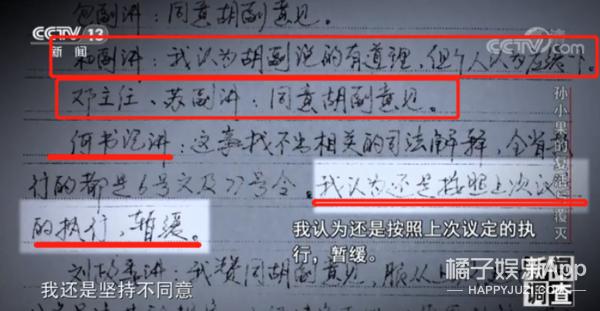 CCTV 13
新闻
CCTV
com
包副讲：同意胡副意见。
和副讲：我认为胡副说的有道理，但个人认为应缓一下。
邓主任、苏副讲：同意胡副意见。
何书记讲：这事找不出相关的司法解释，全省执
行的都是6号文及77号令，我认为还是按照上次议定
的执行，暂缓。
我认为还是按照上次议定的执
行，暂缓。
我赞同胡副意见，服从上
我还是坚持不同意
孙小果的复活与覆灭
新闻
调查
橘子娱乐App
HAPPYJUZI.COM